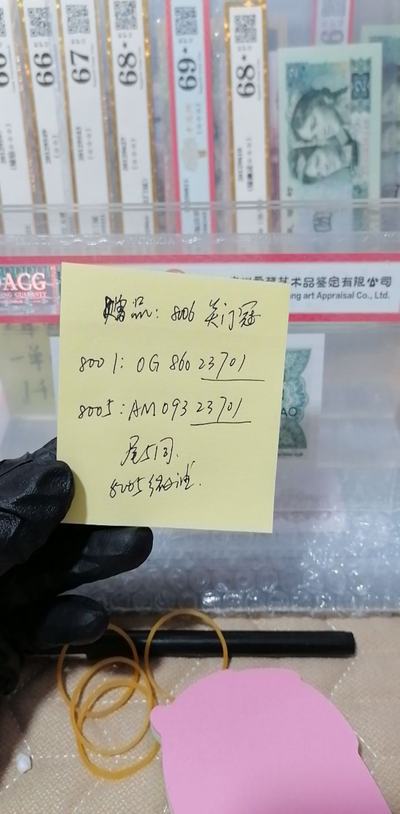 66
67
68★
69★
68★
ACG
艺术品鉴定有限公司
art Appraisal Co., Ltd.
赠品: 8006 关门冠
8001: OG 860 23701
8005: AM 093 23701
尾5同.
8005